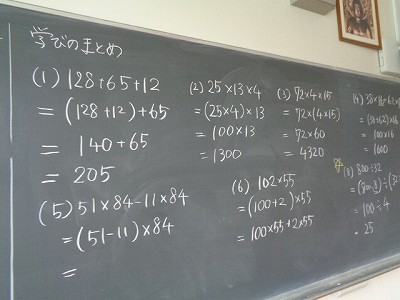 学びのまとめ
(1) 128+65+12
= (128+12)+65
= 140+65
= 205
(2) 25×13×4
= (25×4)×13
= 100×13
= 1300
(3) 72×4×15
= 72×(4×15)
= 72×60
= 4320
(4) 38×16+62×
= (38+62)×16
= 100×16
= 1600
(5) 51×84-11×84
= (51-11)×84
=
(6) 102×55
= (100+2)×55
= 100×55+2×55
800÷32
= 100÷4
= 25